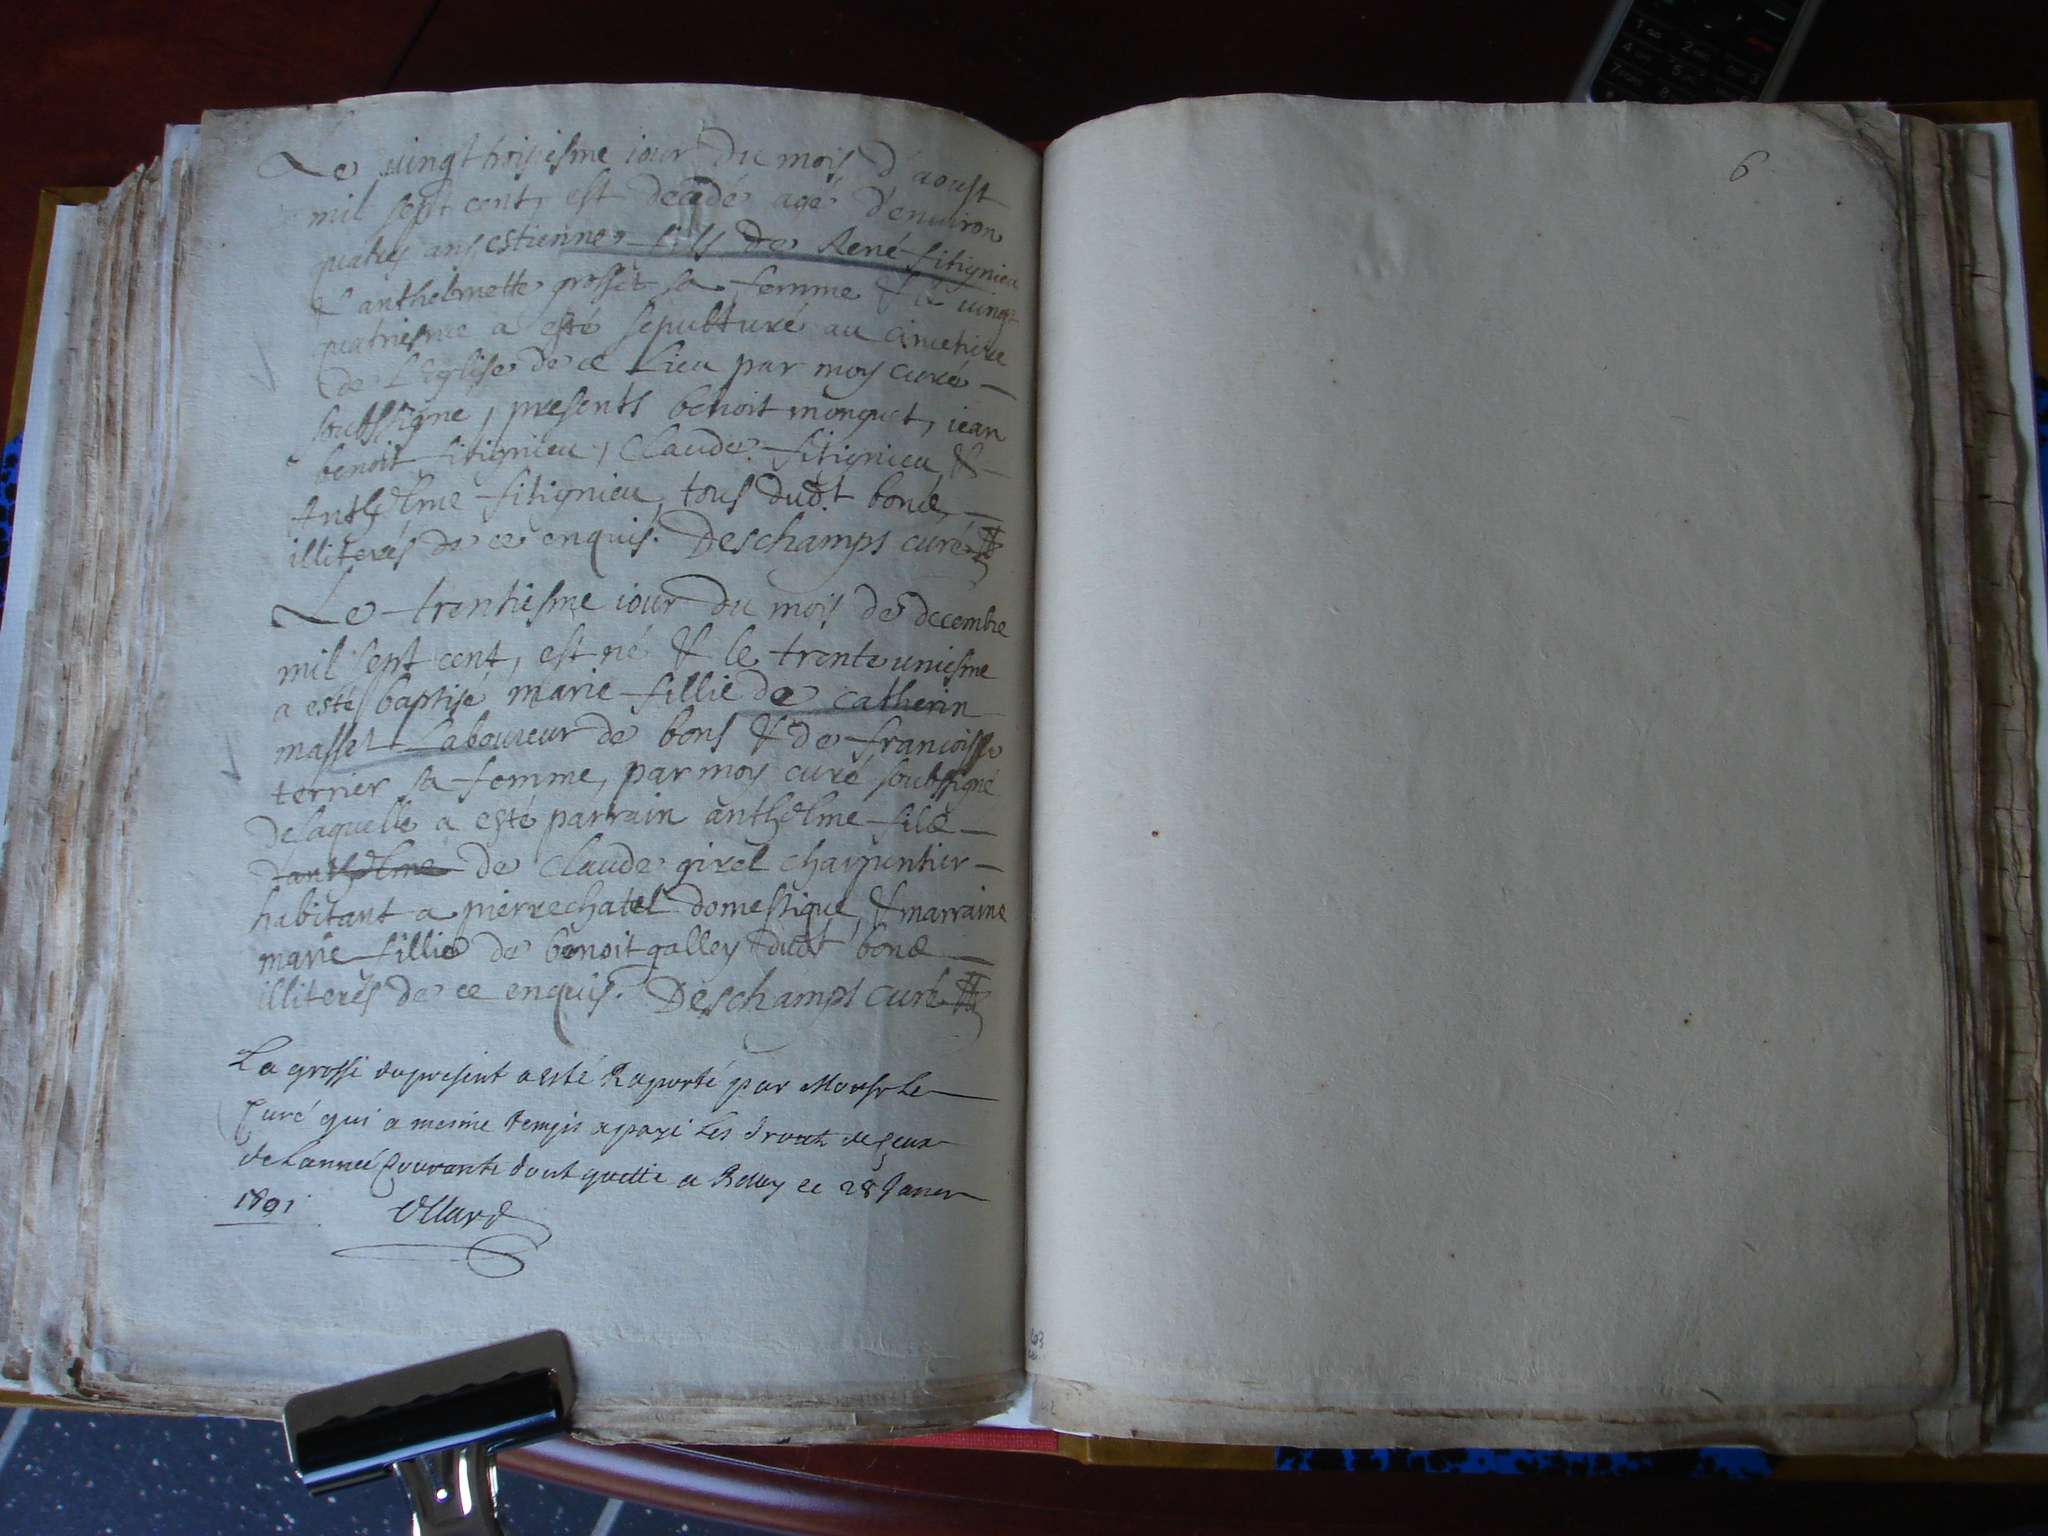 Le vingt troisiesme iour du mois d'aoust
mil sept cent, est decedé agé d'environ
quatres ans estienne fils de René fitignieu
& anthelmette prosset sa femme & le vingt
quatriesme a esté sepulturé au cimetiere
de L'Eglise de ce Lieu par moy curé
soubsigne, presents benoit monguet, iean
benoit fitignieu, Claude fitignieu &
Anthelme fitignieu, tous dudt bons,
illiterés de ce enquis. Deschamps curé
Le trentiesme iour du mois de decembre
mil sept cent, est né & le trente uniesme
a esté baptisé marie fillie de Catherin
masset Laboureur de bons & de francoise
terrier sa femme, par moy curé soubsigné
de laquelle a esté parrain anthelme filz
d'anthelme de Claude girel charpentier
habitant a pierrechatel domestique, & marraine
marie fillie de benoit galley dudt bons
illiterés de ce enquis. Deschamps curé
La grosse du present a esté Raporté par Monsr Le
Curé qui a mesme temps a payé Les droit de
de Lannée Courante dont quitte a Belley ce 28 Janer
1701 Ollard
6